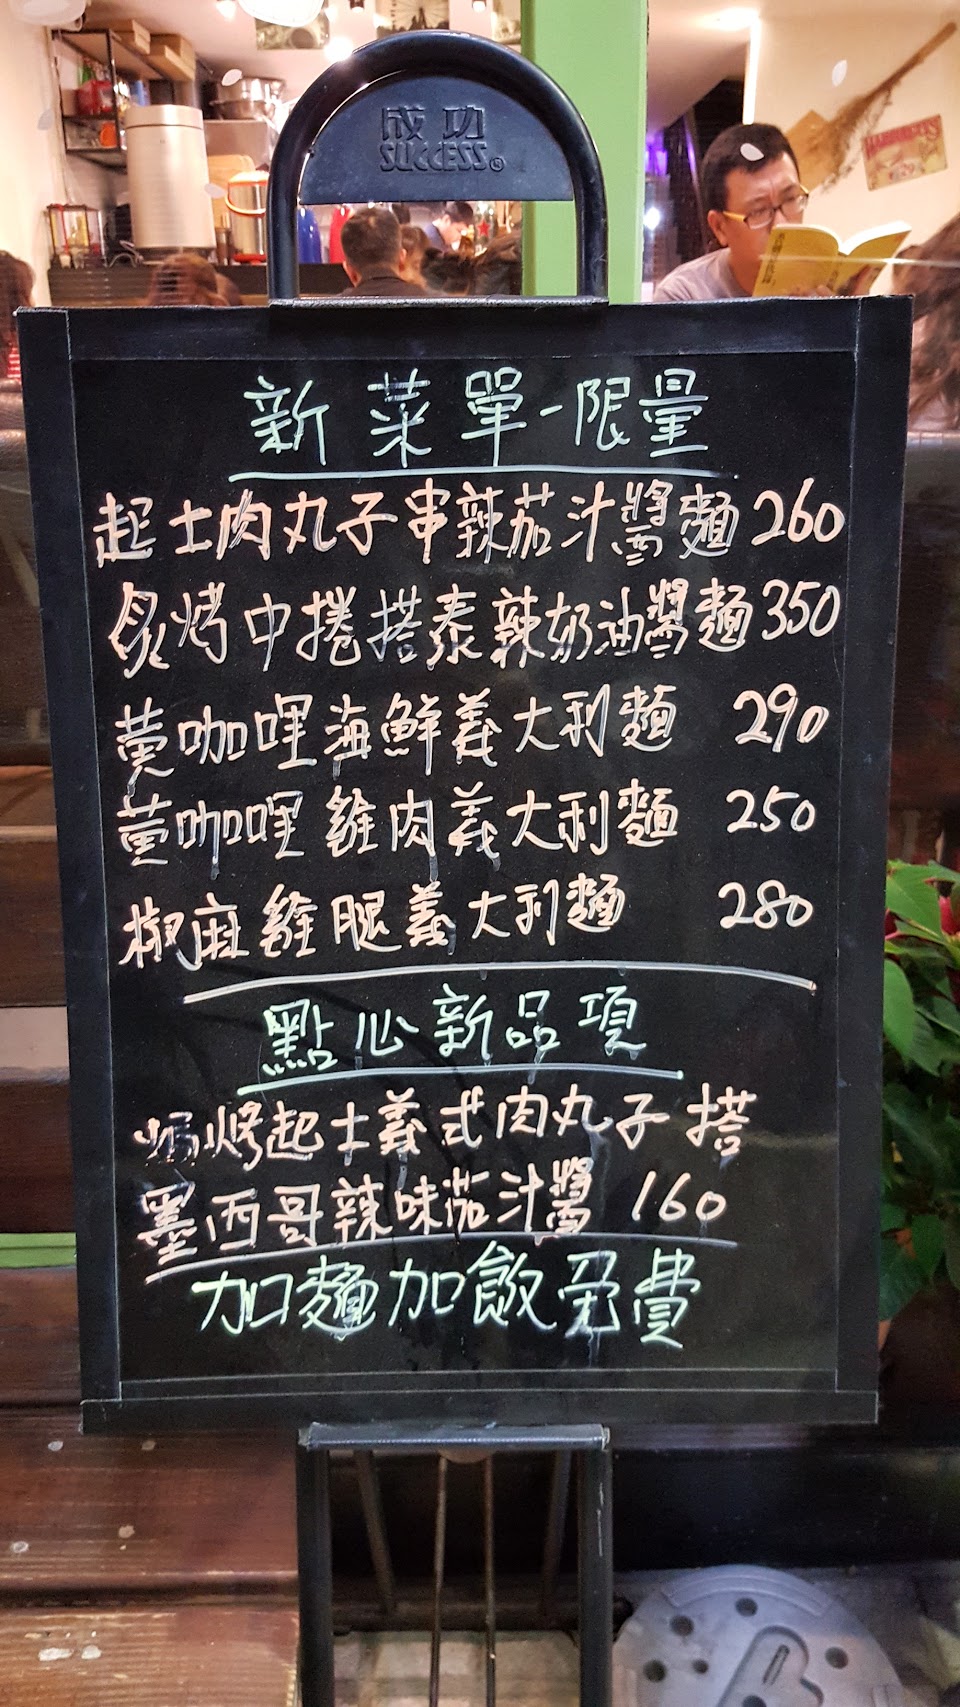 成功
SUCCESS®
HAMBURGERS
新菜單-限量
起士肉丸子串辣茄汁醬麵260
炙烤中捲搭泰辣奶油醬麵350
黃咖哩海鮮義大利麵 290
黃咖哩雞肉義大利麵 250
椒麻雞腿義大利麵 280
點心新品項
焗烤起士義式肉丸子搭
墨西哥辣味茄汁醬 160
加麵加飲免費